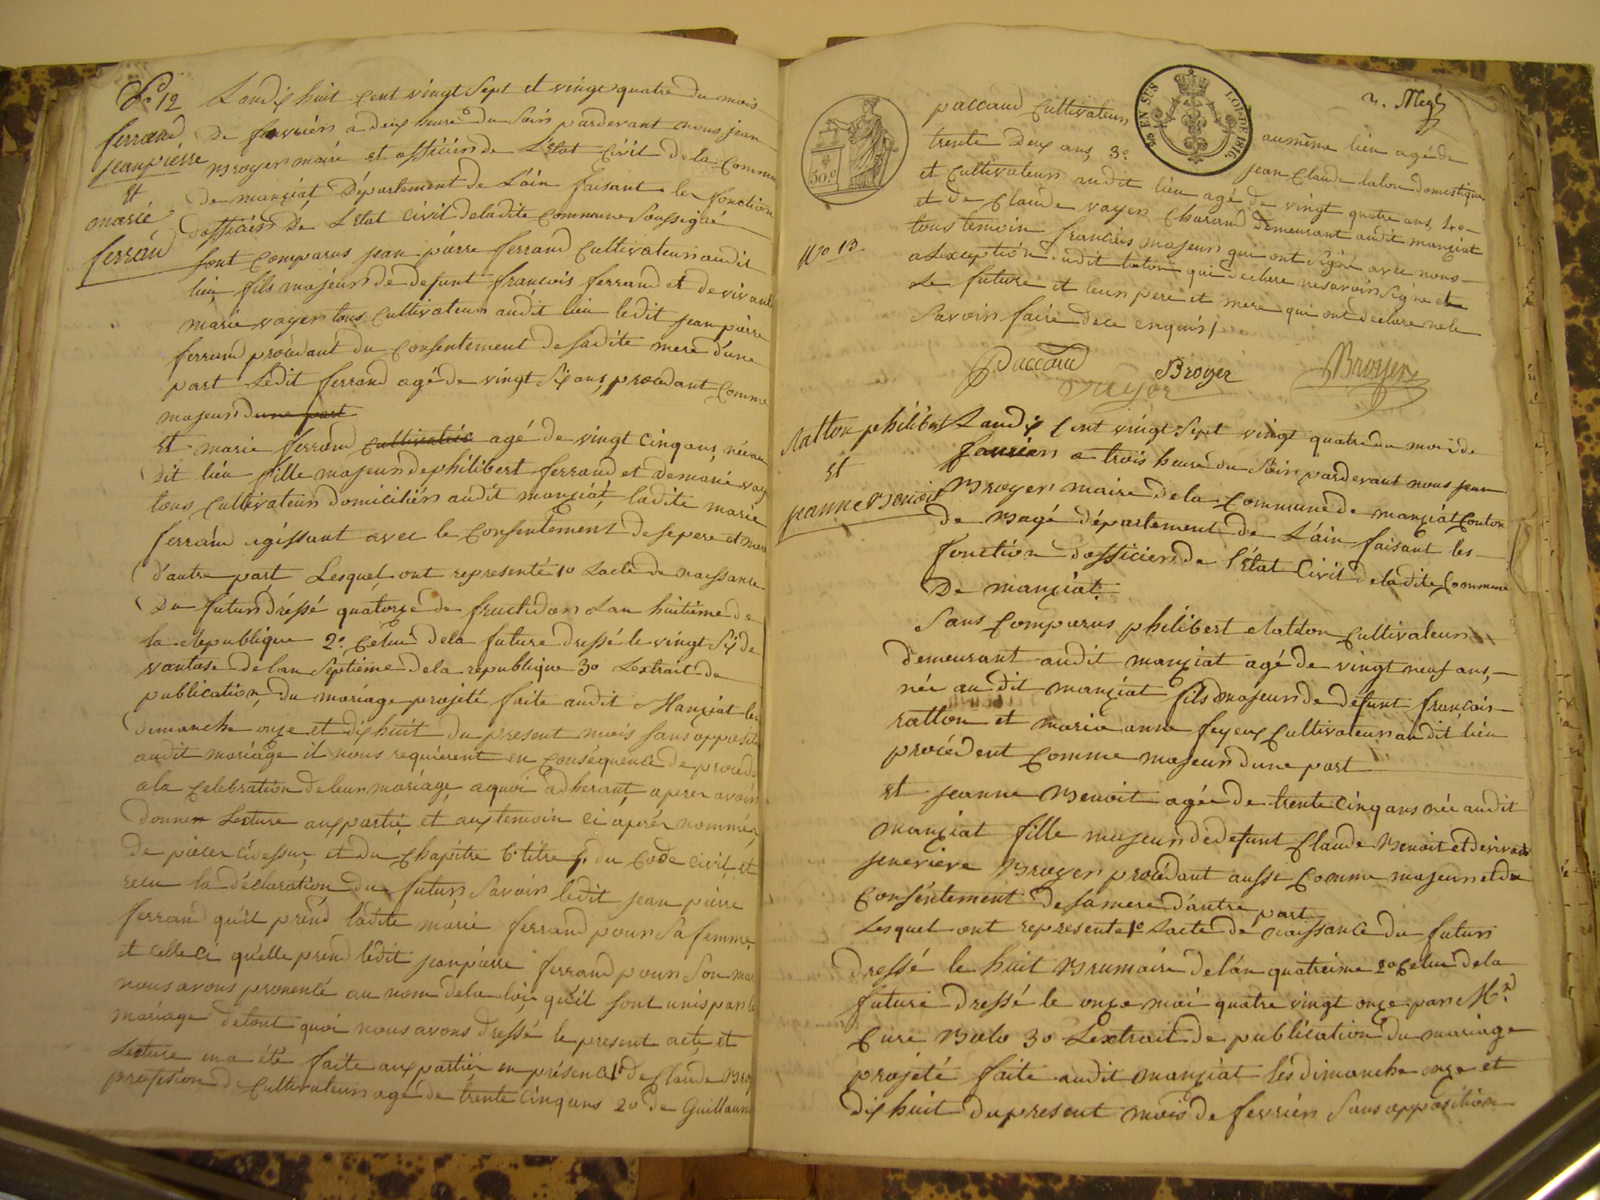 No 12
ferrand
jeanpierre
Et
marié
ferrand
Landix huit Cent vingt Sept et vingt quatre du mois
de fevrier a deux heures du Soir pardevant nous jean
Broyer maire et officier de L'Etat Civil de la Commune
de manziat Département de L'ain faisant les fonction
d'officier De L'Etat Civil de ladite Commune Soussigné
Sont Comparus jean pierre ferrand Cultivateur audit
lieu fils majeur de defunt francois ferrand et de vivante
marie vayer tous Cultivateur audit lieu ledit jean pierre
ferrand procedant du Consentement de sadite mere d'une
part Ledit ferrand agé de vingt Six ans procedant Comme
majeur dune part
Et marie ferrand Cultivatrice agé de vingt Cinq ans née au
dit lieu fille majeur de philibert ferrand et de marie vay
tous Cultivateur domiciliés audit manziat, ladite marie
ferrand agissant avec le Consentement de se pere et mere
d'autre part Lesquel ont representé 1o Lacte de naissance
Du futur dréssé quatorze de fructidor Lan huitieme de
la republique 2o Celui de la future dressé le vingt Six de
vantose de lan Septieme de la republique 3o Lextrait de
publication du mariage projeté faite audit Manziat les
dimanche onze et dix huit du present mois Sans opposition
audit mariage il nous requierent en Conséquence de proced
a la Celebration de leur mariage a quoi adherant, aprer avoir
donner Lecture aux partie et aux temoin ci aprér nommé
De pieces cidessus et du Chapitre 6 titre 5 du Code Civil et
recu la déclaration du futur Savoir ledit jean pierre
ferrand qu'il prend ladite marie ferrand pour Sa femme
et celle ci qu'elle prend ledit jeanpierre ferrand pour Son mari
nous avons prononcé au nom de la loi qu'il sont unis par le
mariage de tout quoi nous avons dressé le present acte et
Lecture en a été faite aux partier en présence 1o de Claude Broy
profession de Cultivateur agé de trente Cinq ans 2o de Guillaume
paccaud Cultivateur aumême lieu agé de
trente Deux ans, 3o jean Claude laton domestique
et Cultivateur audit lieu agé de vingt quatre ans, 4o
et de Claude vayer Charand demeurant audit manziat
tous temoin francais majeur qui ont signé avec nous
a Lexception dudit laton qui declare ne savoir signe et
Le future et leur pere et mere qui ont declare ne le
Savoir faire de ce enquis/
50 c
EN SUS
LOI DE 1816
paccaud
vayer
Broyer
Broyer
No 13
Ratton philibert
Et
jeanne Benoit
Landix Cent vingt Sept vingt quatre du moi de
fevrier a trois heure du Soir pardevant nous jean
Broyer maire de la Commune de manziat Conton
de Bagé département de L'ain faisant les
fonction d'officier de l'Etat Civil de ladite Commune
De manziat.
Sans Comparus philibert Ratton Cultivateur
demeurant audit manziat agé de vingt neuf ans,
née au dit manziat fils majeur de defunt francois
ratton et marie anne feyeux Cultivateur audit lieu
procédent Comme majeur dune part
Et jeanne Benoit agée de trente Cinq ans née audit
manziat fille majeur de defunt Claude Benoit et de vivante
jenevieve Broyer procédant aussi Comme majeur et du
Consentement de sa mere d'autre part
Lesquel ont representé 1o Lacte de naissance du futur
dressé le huit Brumaire de lan quatrieme 2o Celui de la
future dressé le onze mai quatre vingt onze par Mr
Cure 3o Lextrait de publication du mariage
projeté faite audit manziat les dimanche onze et
dix huit du present mois de fevrier Sans opposition